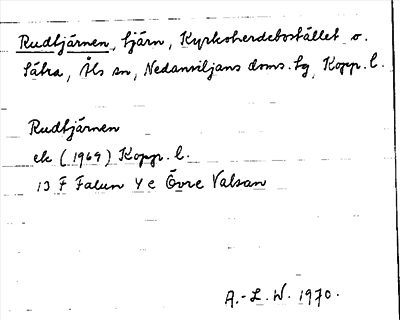 Rudtjärnen, tjärn, Kyrkoherdebostället o.
Sätra, Åls sn, Nedansiljans doms. tg, Kopp. l.
Rudtjärnen
ek (1969) Kopp. l.
13 F Falun 4 e Övre Valsan
A.-L. W. 1970.